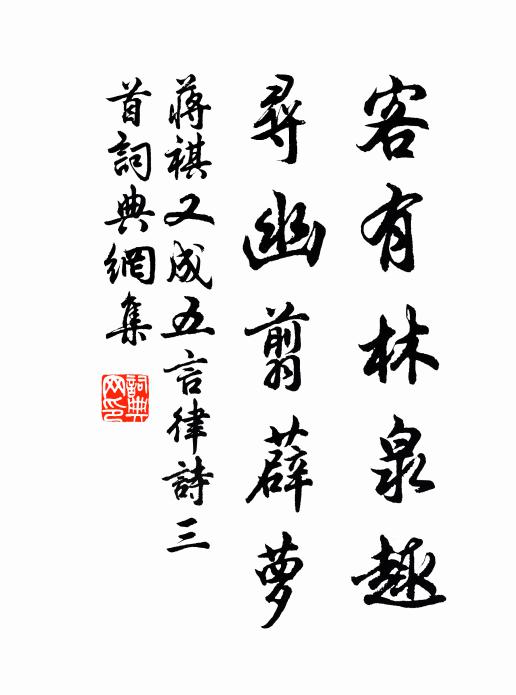 客有林泉趣
尋幽翦薜萝
蔣祺又成五言律詩三
首詞典網集
詞典网印